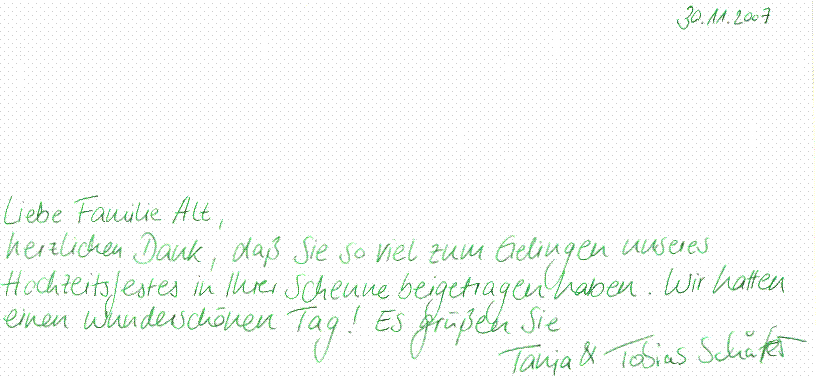 30.11.2007
Liebe Familie Alt,
herzlichen Dank, daß Sie so viel zum Gelingen unseres
Hochzeitsfestes in Ihrer Scheune beigetragen haben. Wir hatten
einen wunderschönen Tag! Es grüßen Sie
Tanja & Tobias Schäfer